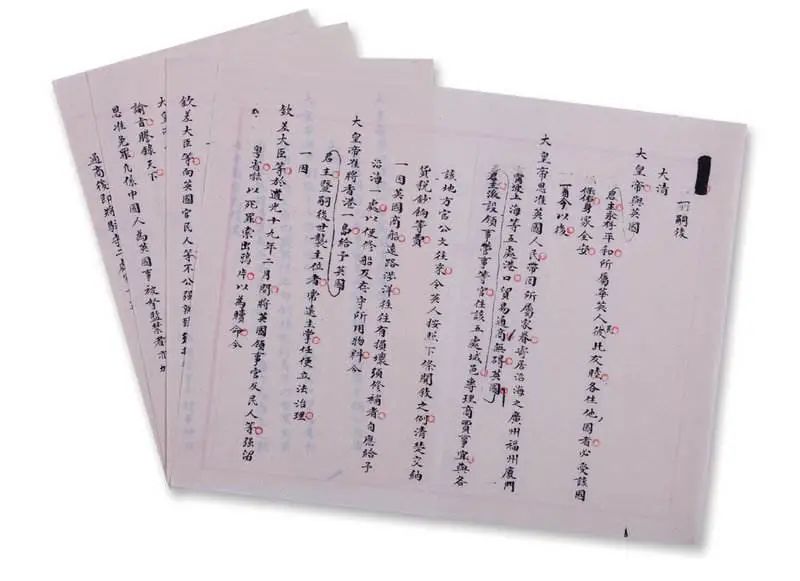 一嗣後
大清
大皇帝與英國
君主永存平和所屬華英人民彼此友睦各住他國者必受該國
保佑身家全安
一自今以後
大皇帝恩准英國人民帶同所屬家眷寄居沿海之廣州福州廈門
寧波上海等五處港口貿易通商無礙英國
君主派設領事管事等官住該五處城邑專理商賈事宜與各
該地方官公文往來令英人按照下條開敘之例清楚交納
貨稅鈔餉等費
一因英國商船遠路涉洋往往有損壞須修補者自應給予
沿海一處以便修船及存守所用物料今
大皇帝准將香港一島給予英國
君主暨嗣後世襲主位者常遠主掌任便立法治理
一因
欽差大臣等於道光十九年二月間將英國領事官及民人等強留
粵省嚇以死罪索出鴉片以為贖命今
欽差大臣等向英國官民人等不公強辦
諭旨謄錄天下
恩准免罪凡係中國人為英國事被拏監禁者
通商後即將